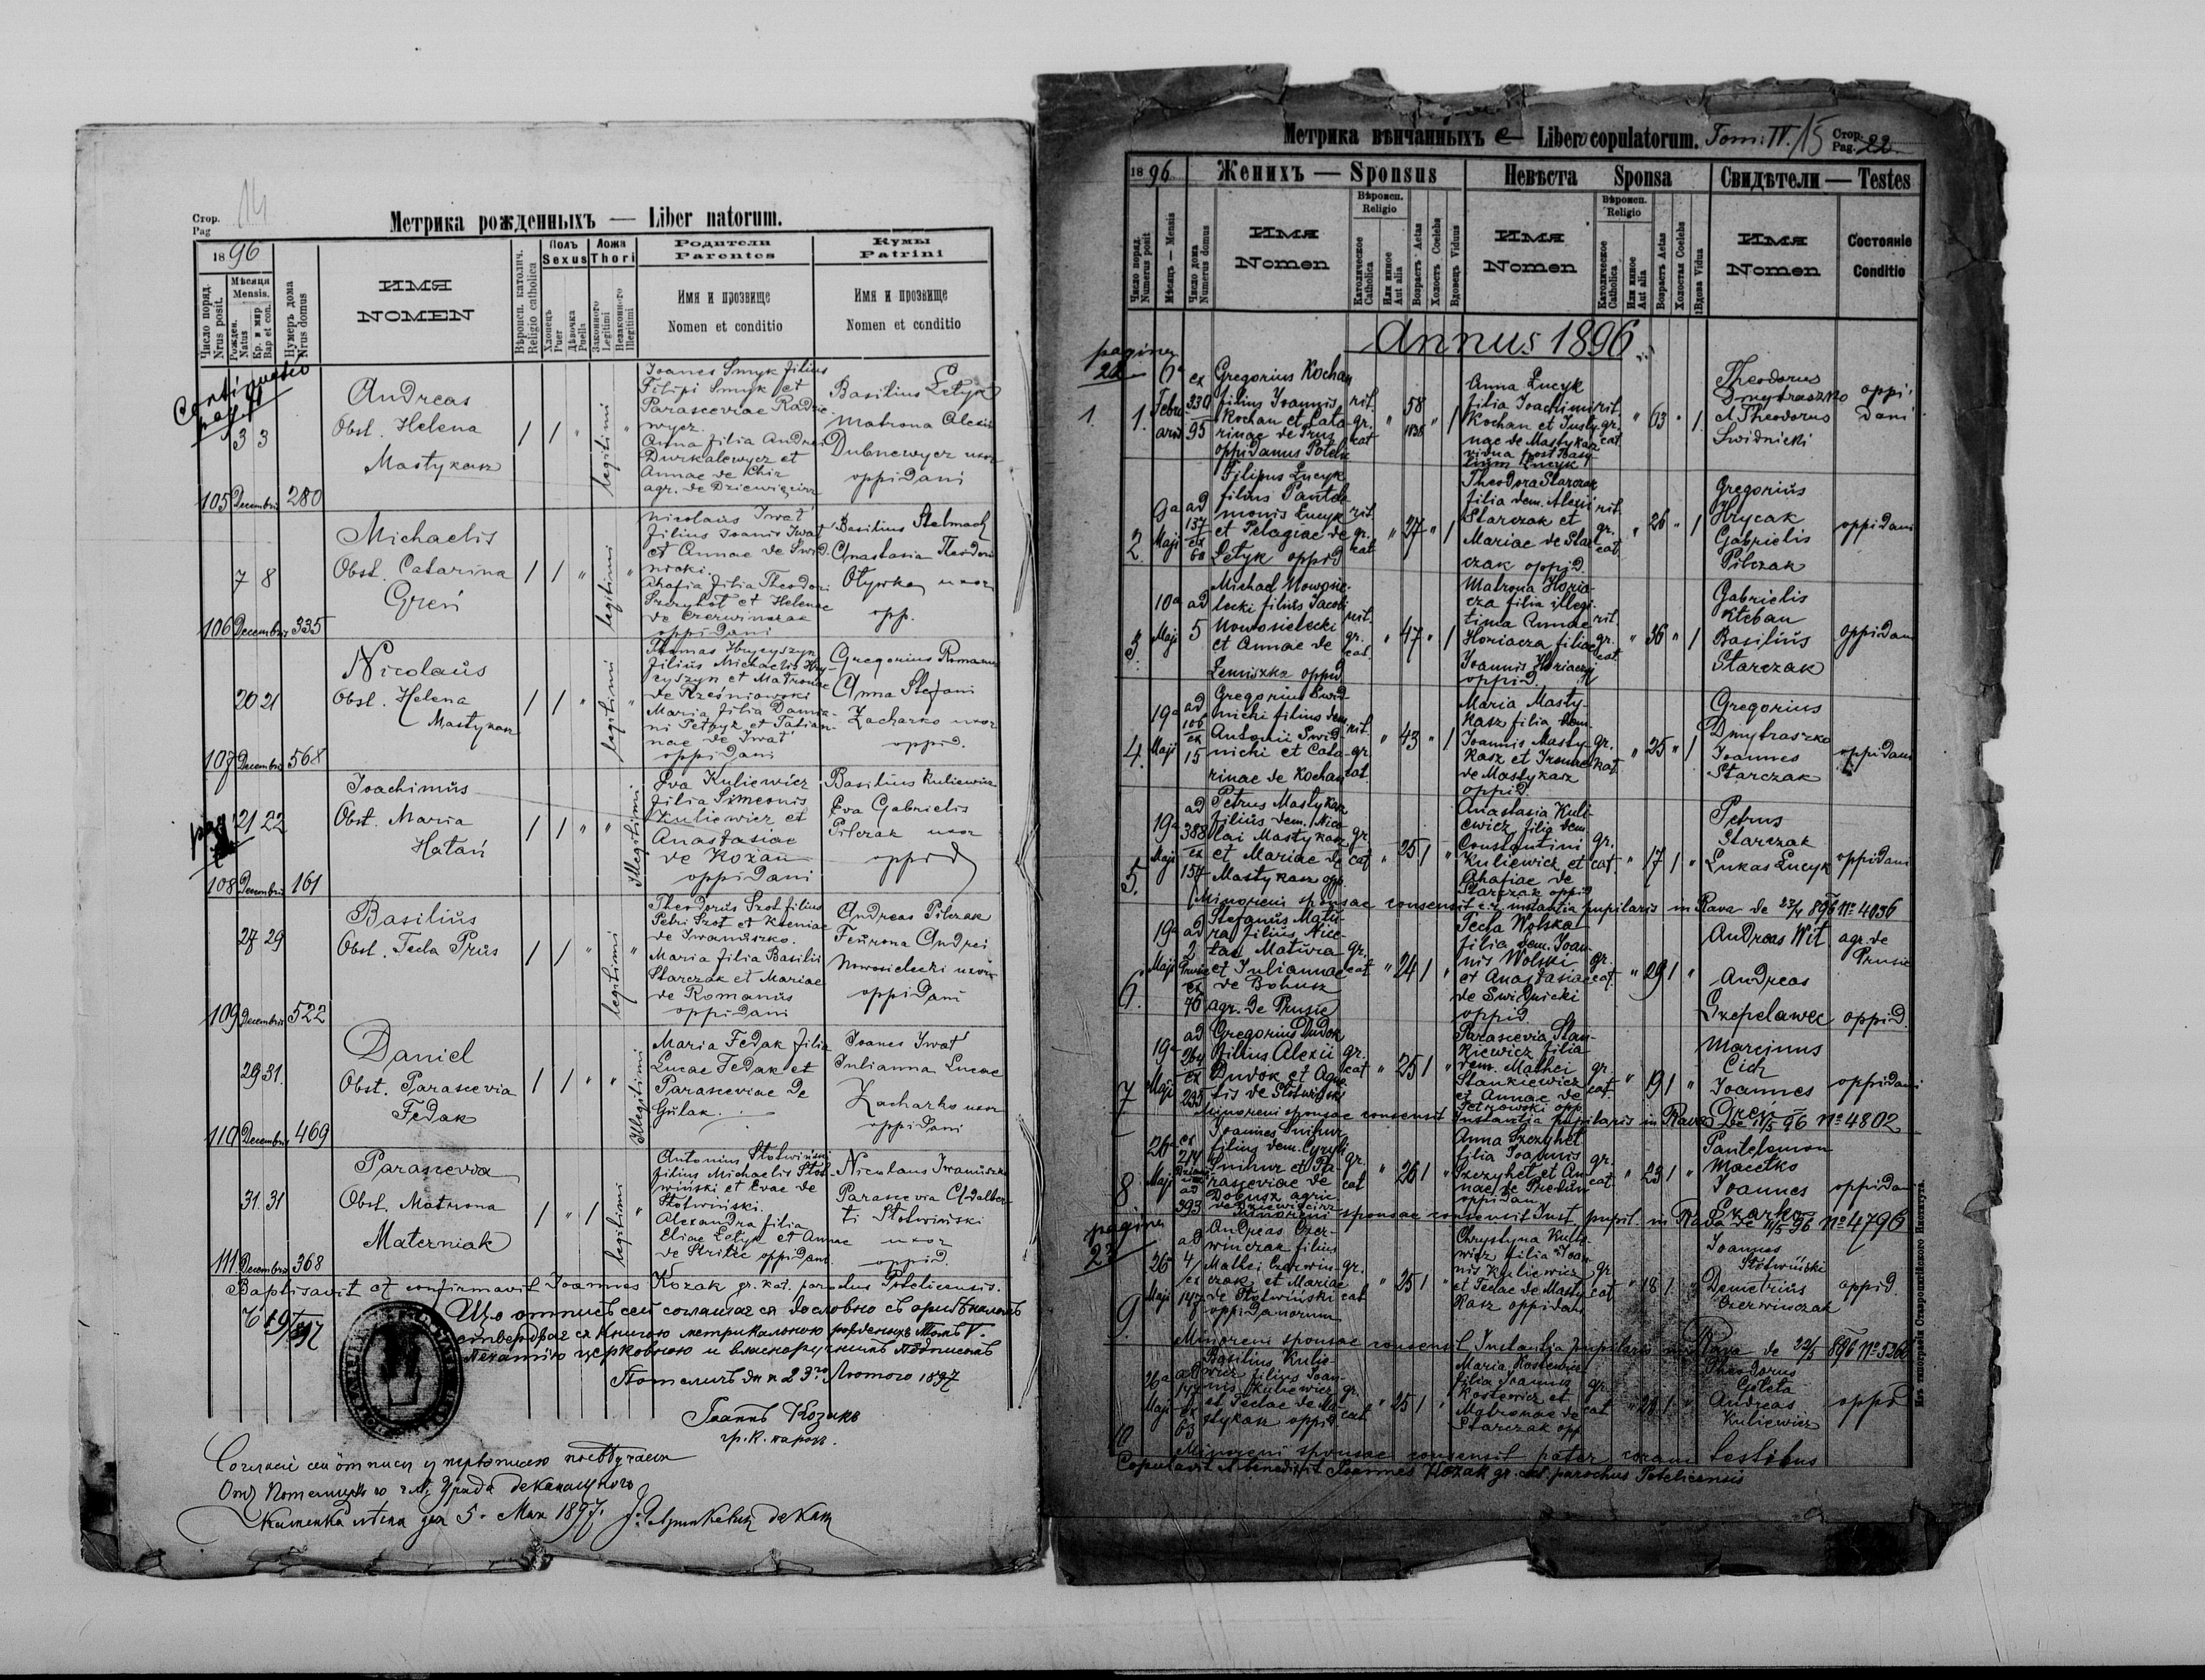 Стор.
Pag
14
Метрика рожденныхъ — Liber natorum.
1896
Число поряд.
Nrus posit.
Мѣсяця
Mensis.
Рожден.
Natus
Кр. и мир
Bap et con.
Нумеръ дома
Nrus domus
ИМЯ
NOMEN
Вѣроисп. католич.
Religio catholica
Полъ
Sexus
Хлопець
Puer
Дѣвочка
Puella
Ложа
Thori
Законного
Legitimi
Незаконного
Illegitimi
Родители
Parentes
Имя и прозвище
Nomen et conditio
Кумы
Patrini
Имя и прозвище
Nomen et conditio
105 3 3 Decembris 280
Andreas
Obst. Helena
Mastykasz
legitimi
Joanes Smyk filius
Filipi Smyk et
Parascevae Radzie-
wycz.
Anna filia Andrei
Durkalewycz et
Annae de Chir
agr. de Dziewięcierz
Basilius Letyk
Matrona Alexii
Dubnewycz uxor
oppidani
106 7 8 Decembris 335
Michaelis
Obst. Catarina
Greń
legitimi
Nicolaus Iwat
filius Joanis Iwat
et Annae de Swid-
nicki.
Ahafia filia Theodori
Szczyhot et Helenae
de Czerwinczak
oppidani
Basilius Stelmach
Anastasia Theodori
uxor
opp.
107 20 21 Decembris 568
Nicolaus
Obst. Helena
Mastykasz
legitimi
Thomas Hrycyszyn
filius Michaelis Hry-
cyszyn et Matronae
Maria filia Damia-
ni Petryk et Tatian-
nae de Iwat
oppidani
Gregorius Romanus
Anna Stefani
Zacharko uxor
oppid.
108 21 22 Decembris 161
Joachimus
Obst. Maria
Hatań
Illegitimi
Eva Kuliewicz
filia Simeonis
Kuliewicz et
Anastasiae
de Kozan
oppidani
Basilius Kuliewicz
Eva Gabrielis
Pilczak uxor
oppid
109 27 29 Decembris 522
Basilius
Obst. Tecla Prus
legitimi
Theodorus Szot filius
Petri Szot et Kseniae
de Iwanuszko.
Maria filia Basilii
Starczak et Mariae
de Romanus
oppidani
Andreas Pilczak
Feurona Andrei
Nowosielecki uxor
oppidani
110 29 31. Decembris 469
Daniel
Obst. Parascevia
Fedak
Illegitimi
Maria Fedak filia
Lucae Fedak et
Parasceviae de
Gulak.
Joanes Iwat
Julianna Lucae
Zacharko uxor
oppidani
111 31 31 Decembris 368
Parascevia
Obst. Matrona
Materniak
legitimi
Antonius Słotwiński
filius Michaelis Słot-
wiński et Evae de
Słotwiński.
Alexandra filia
Eliae Letyk et Annae
oppidani
Nicolaus Iwanuszko
Parascevia Adalber-
ti Słotwiński
uxor
oppid.
Baptisavit et confirmavit Joannes Kozak gr. kat. parochus Potelicensis.
печатію церковною и власноручнымъ подписомъ
Потеличъ дня 23го Лютого 1897
Іоаннъ Козакъ
гр. к. парох.
Каменка дня 5. Мая 1897.
Метрика вѣнчанныхъ — Liber copulatorum. Tom: IV. 15
Стор.
Pag. 22
1896
Женихъ — Sponsus
Невѣста Sponsa
Свидѣтели — Testes
Число поряд.
Numerus posit
Мѣсяць — Mensis
Число дома
Numerus domus
ИМЯ
Nomen
Вѣроисп.
Religio
Католическое
Catholica
Или иное
Aut alia
Возрастъ Aetas
Холостъ Coelebs
Вдовець Viduus
ИМЯ
Nomen
Вѣроисп.
Religio
Католическое
Catholica
Или иное
Aut alia
Возрастъ Aetas
Холостая Coelebs
Вдова Vidua
ИМЯ
Nomen
Состояніе
Conditio
Annus 1896
pagina
22
1. 6a Febru
arii ex 330 95
Gregorius Kochan
filius Joannis
Kochan et Cata-
rinae de Prus
oppidanus Potelic
rit. gr. cat 58 1
Anna Lucyk
filia Joachimi
Kochan et Justy-
nae de Mastykasz
vidua post Basy-
lium Lucyk
rit. gr. cat. 63 1.
Theodorus
Dmytraszko
et Theodorus
Swidnicki
oppidani
2. 9a Maji ad 137 ex 60
Filipus Lucyk
filius Pantele-
monis Lucyk
et Pelagiae de
Letyk oppid
rit gr. cat 27 1
Theodora Starczak
filia dem. Alexii
Starczak et
Mariae de Star-
czak oppid.
rit. gr. cat 26 1
Gregorius
Hrycak
Gabrielis
Pilczak
oppidani
3. 10a Maji ad 5
Michael Nowosie-
lecki filius Jacobi
Nowosielecki
et Annae de
Lemiszka oppid
rit. gr. cat. 47 1
Matrona Horia-
cza filia illegi-
tima Annae
Horiacza filiae
Joannis Horiaczyj
oppid.
rit. gr. cat. 36 1
Gabrielis
Kteban
Basilius
Starczak
oppidani
4. 19a Maji ad 106 ex 15
Gregorius Swid-
nicki filius dem.
Antonii Swid-
nicki et Cata-
rinae de Kochan
rit. gr. cat. 43 1
Maria Masty-
kasz filia dem.
Joannis Masty-
kasz et Irenae
de Mastykasz
oppid.
gr. kat. 25 1
Gregorius
Dmytraszko
Joannes
Starczak
oppidani
5. 19a Maji ad 388 ex 157
Petrus Mastykasz
filius dem. Nico-
lai Mastykasz
et Mariae de
Mastykasz opp.
gr cat 25 1
Anastasia Kuli-
ewicz filia dem
Constantini
Kuliewicz et
Ahafiae de
Starczak oppid
gr. cat. 17 1
Petrus
Starczak
Lukas Lucyk
oppidani
Minoreni sponsae consensit c. r. instantia pupilaris in Rava de 23/4 896 No 4036
6. 19a Maji ad 2 Prusie ex 46
Stefanus Matu-
ra filius Nice-
tae Matura
et Juliannae
de Bohusz
agr. de Prusie
gr. cat 24 1
Tecla Wolska
filia dem. Joan-
nis Wolski
et Anastasiae
de Swidnicki
oppid
gr. cat. 29 1
Andreas Wit agr. de
Prusie
Andreas
Szepelawec oppid.
7 19a Maji ad 264 ex 295
Gregorius Dudok
filius Alexii
Dudok et Agne-
tis de Słotwiński
gr. cat 25 1
Parascevia Stan-
kiewicz filia
dem. Mathei
Stankiewicz
et Annae de
Petrowski opp
gr. cat. 19 1
Marcinus
Cich
Joannes
Gren
oppidani
Minoreni sponsae consensit Instantia pupilaris in Rava de 11/5 96 No 4802
8 26 Maji ex 214 ad 393
Joannes Snihur
filius dem. Cyryli
Snihur et Pa-
rasceviae de
Dobusz agric
de Dziewięcierz
gr. cat 26 1
Anna Szczyhet
filia Joannis
Szczyhet et An-
nae de Predun
oppidan
gr. cat 23 1
Pantelemon
Macetko
Joannes
oppidan
Minoreni sponsae consensit Inst. pupil. in Rava de 11/5 96 No 4796
pagina
23
9. 26 Maji ad 4 ex 147
Andreas Czer-
winczak filius
Mathei Czerwin-
czak et Mariae
de Słotwiński
oppidanorum
gr. cat 25 1
Chrystyna Kulie-
wicz filia Joan-
nis Kuliewicz
et Teclae de Masty-
kasz oppidan
gr cat. 18 1
Joannes
Słotwiński
Demetrius
Czerwinczak
oppid.
Minoreni sponsae consensit Instantia pupilaris in Rava de 22/5 896 No 5260
10 26a Maji ad 147 ex 63
Basilius Kulie-
wicz filius Joan-
nis Kuliewicz
et Teclae de Ma-
stykasz oppid
gr. cat 25 1
Maria Kostewicz
filia Joannis
Kostewicz et
Matronae de
Starczak opp
gr. cat 1
Theodorus
Goleta
Andreas
Kuliewicz
oppid
Minoreni sponsae consensit pater coram testibus
Copulavit et benedixit Joannes Kozak gr. cat. parochus Potelicensis
Изъ типографіи Ставропигійского Института.